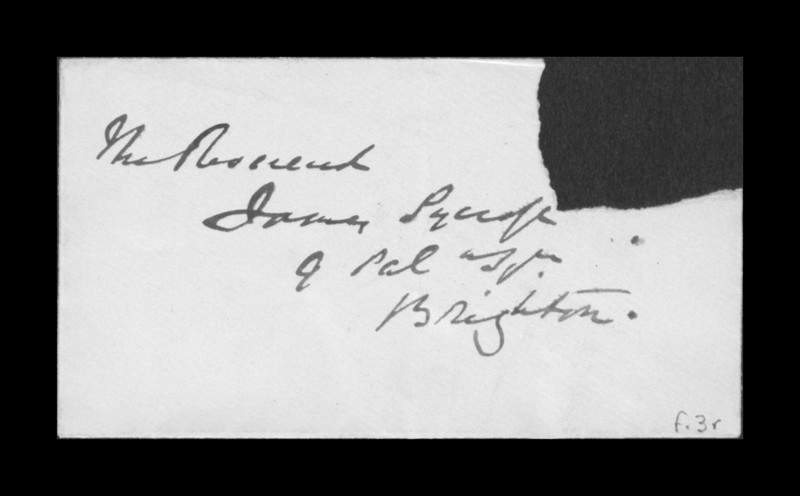 The Reverend
James Lycroft
9 Pal
Brighton.
f.3r